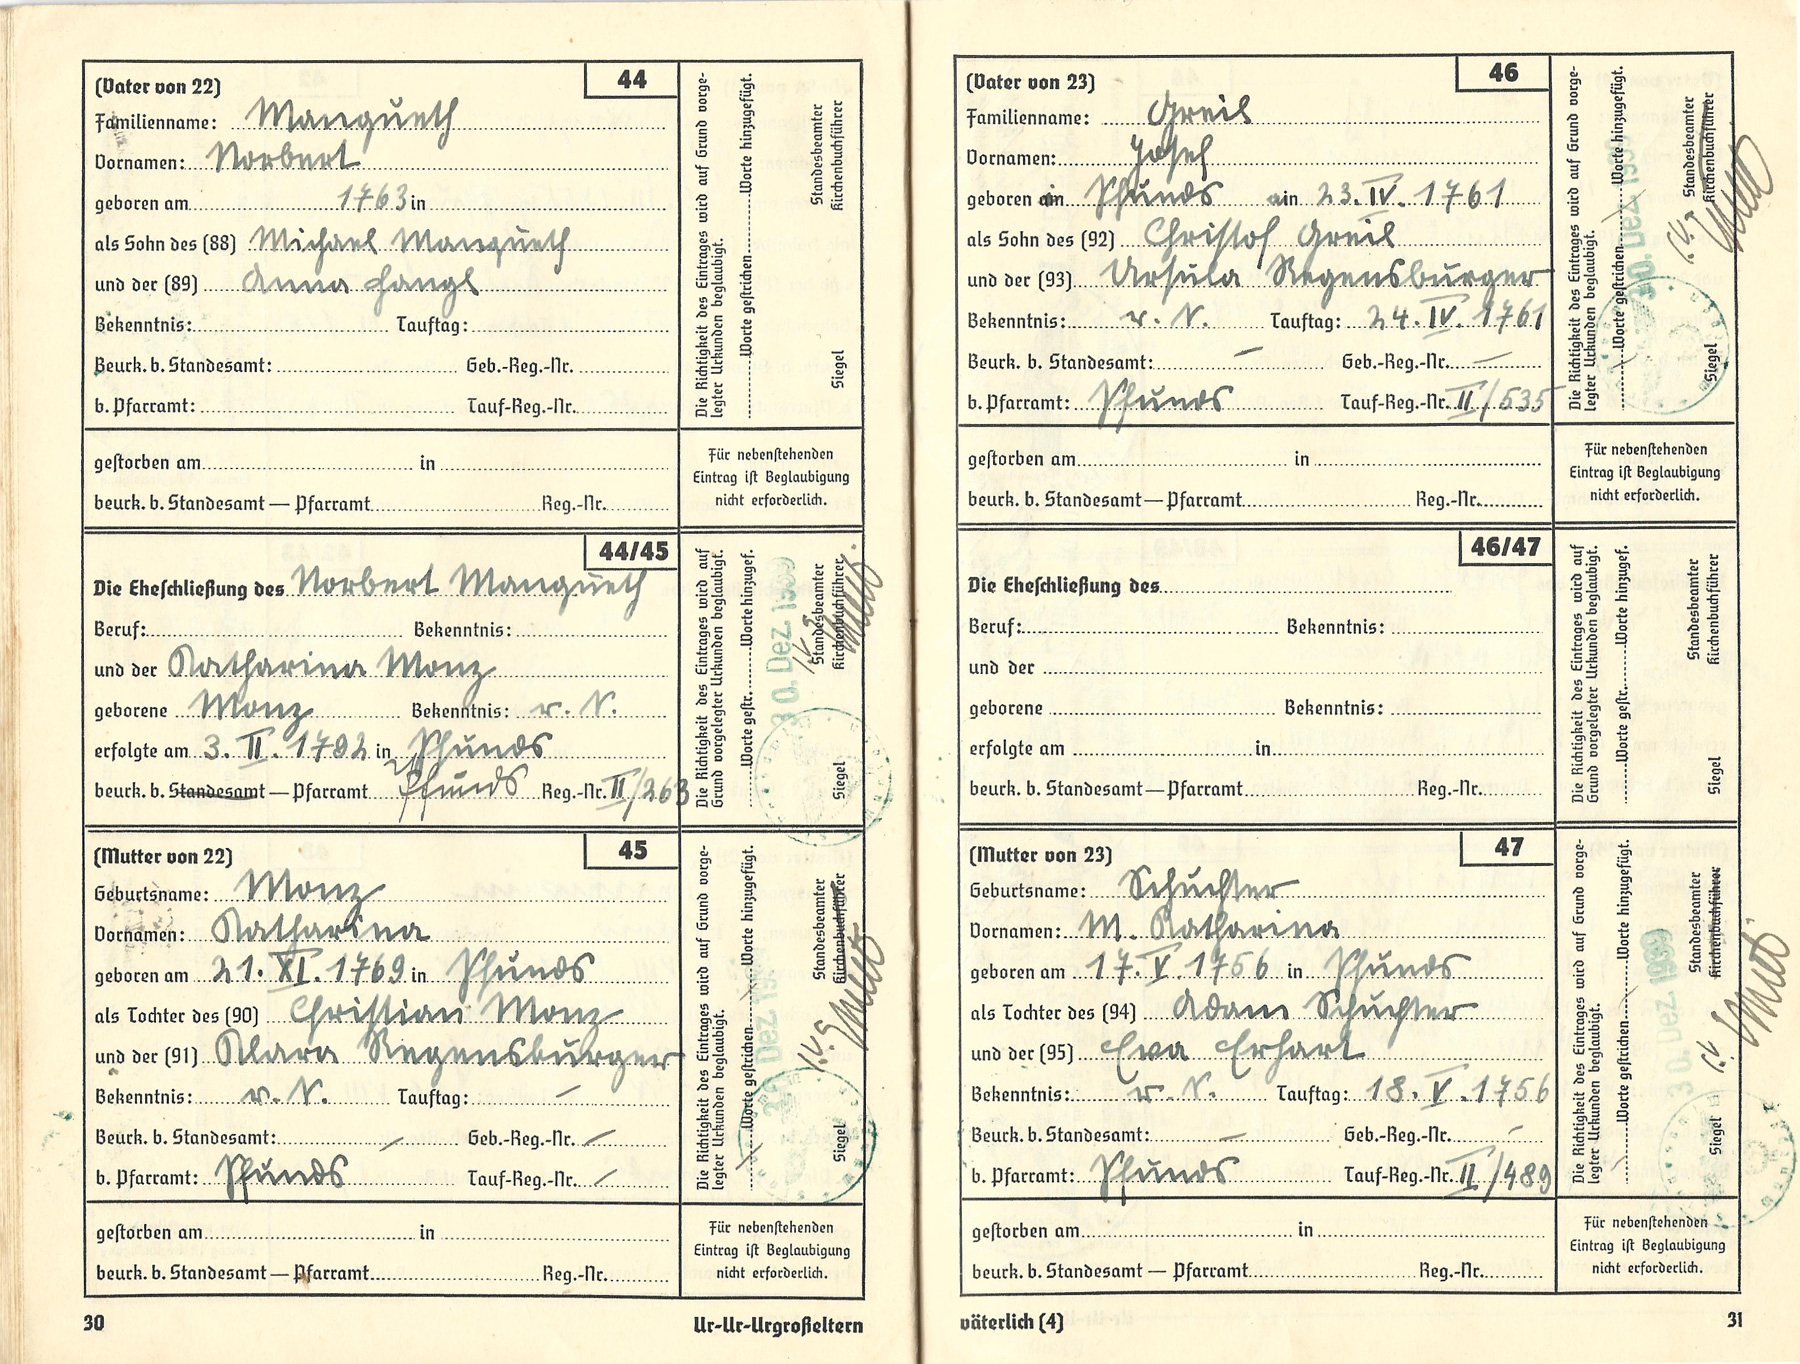 (Vater von 22) 44
Familienname: Mangueth
Vornamen: Norbert
geboren am 1763 in
als Sohn des (88) Michael Mangueth
und der (89) Anna Langl
Bekenntnis: Tauftag:
Beurk. b. Standesamt: Geb.-Reg.-Nr.
b. Pfarramt: Tauf-Reg.-Nr.
Die Richtigkeit des Eintrages wird auf Grund vorge-
legter Urkunden beglaubigt.
Worte gestrichen Worte hinzugefügt.
Standesbeamter
Kirchenbuchführer
Siegel
gestorben am in
beurk. b. Standesamt — Pfarramt Reg.-Nr.
Für nebenstehenden
Eintrag ist Beglaubigung
nicht erforderlich.
44/45
Die Eheschließung des Norbert Mangueth
Beruf: Bekenntnis:
und der Katharina Monz
geborene Monz Bekenntnis: r. K.
erfolgte am 3. II. 1792 in Pfunds
beurk. b. Standesamt — Pfarramt Pfunds Reg.-Nr. II/263
Die Richtigkeit des Eintrages wird auf
Grund vorgelegter Urkunden beglaubigt.
Worte gestr. Worte hinzugef.
30. Dez. 1939
Standesbeamter
Kirchenbuchführer
Siegel
(Mutter von 22) 45
Geburtsname: Monz
Vornamen: Katharina
geboren am 21. XI. 1769 in Pfunds
als Tochter des (90) Christian Monz
und der (91) Klara Regensburger
Bekenntnis: r. K. Tauftag: —
Beurk. b. Standesamt: — Geb.-Reg.-Nr. —
b. Pfarramt: Pfunds Tauf-Reg.-Nr. —
Die Richtigkeit des Eintrages wird auf Grund vorge-
legter Urkunden beglaubigt.
Worte gestrichen Worte hinzugefügt.
30. Dez. 19
Standesbeamter
Kirchenbuchführer
i. V.
Siegel
gestorben am in
beurk. b. Standesamt — Pfarramt Reg.-Nr.
Für nebenstehenden
Eintrag ist Beglaubigung
nicht erforderlich.
30 Ur-Ur-Urgroßeltern
(Vater von 23) 46
Familienname: Greil
Vornamen: Josef
geboren in Pfunds am 23. IV. 1761
als Sohn des (92) Christof Greil
und der (93) Ursula Regensburger
Bekenntnis: r. K. Tauftag: 24. IV. 1761
Beurk. b. Standesamt: — Geb.-Reg.-Nr. —
b. Pfarramt: Pfunds Tauf-Reg.-Nr. II/535
Die Richtigkeit des Eintrages wird auf Grund vorge-
legter Urkunden beglaubigt.
Worte gestrichen Worte hinzugefügt.
30. Dez. 1939
Standesbeamter
Kirchenbuchführer
i. V.
Siegel
gestorben am in
beurk. b. Standesamt — Pfarramt Reg.-Nr.
Für nebenstehenden
Eintrag ist Beglaubigung
nicht erforderlich.
46/47
Die Eheschließung des
Beruf: Bekenntnis:
und der
geborene Bekenntnis:
erfolgte am in
beurk. b. Standesamt — Pfarramt Reg.-Nr.
Die Richtigkeit des Eintrages wird auf
Grund vorgelegter Urkunden beglaubigt.
Worte gestr. Worte hinzugef.
Standesbeamter
Kirchenbuchführer
Siegel
(Mutter von 23) 47
Geburtsname: Schuchter
Vornamen: M. Katharina
geboren am 17. V. 1756 in Pfunds
als Tochter des (94) Adam Schuchter
und der (95) Eva Erhart
Bekenntnis: r. K. Tauftag: 18. V. 1756
Beurk. b. Standesamt: — Geb.-Reg.-Nr. —
b. Pfarramt: Pfunds Tauf-Reg.-Nr. II/489
Die Richtigkeit des Eintrages wird auf Grund vorge-
legter Urkunden beglaubigt.
Worte gestrichen Worte hinzugefügt.
30. Dez. 1939
Standesbeamter
Kirchenbuchführer
i. V.
Siegel
gestorben am in
beurk. b. Standesamt — Pfarramt Reg.-Nr.
Für nebenstehenden
Eintrag ist Beglaubigung
nicht erforderlich.
väterlich (4) 31